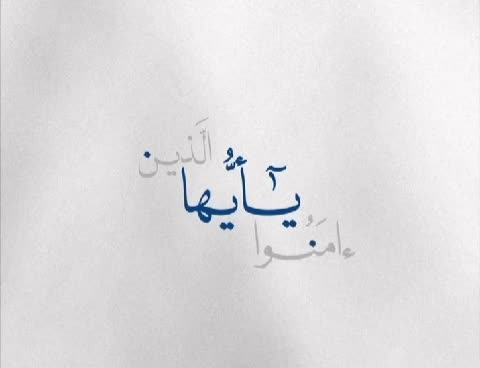 يـٰٓأيُّها
الَّذين
ءامَنُوا